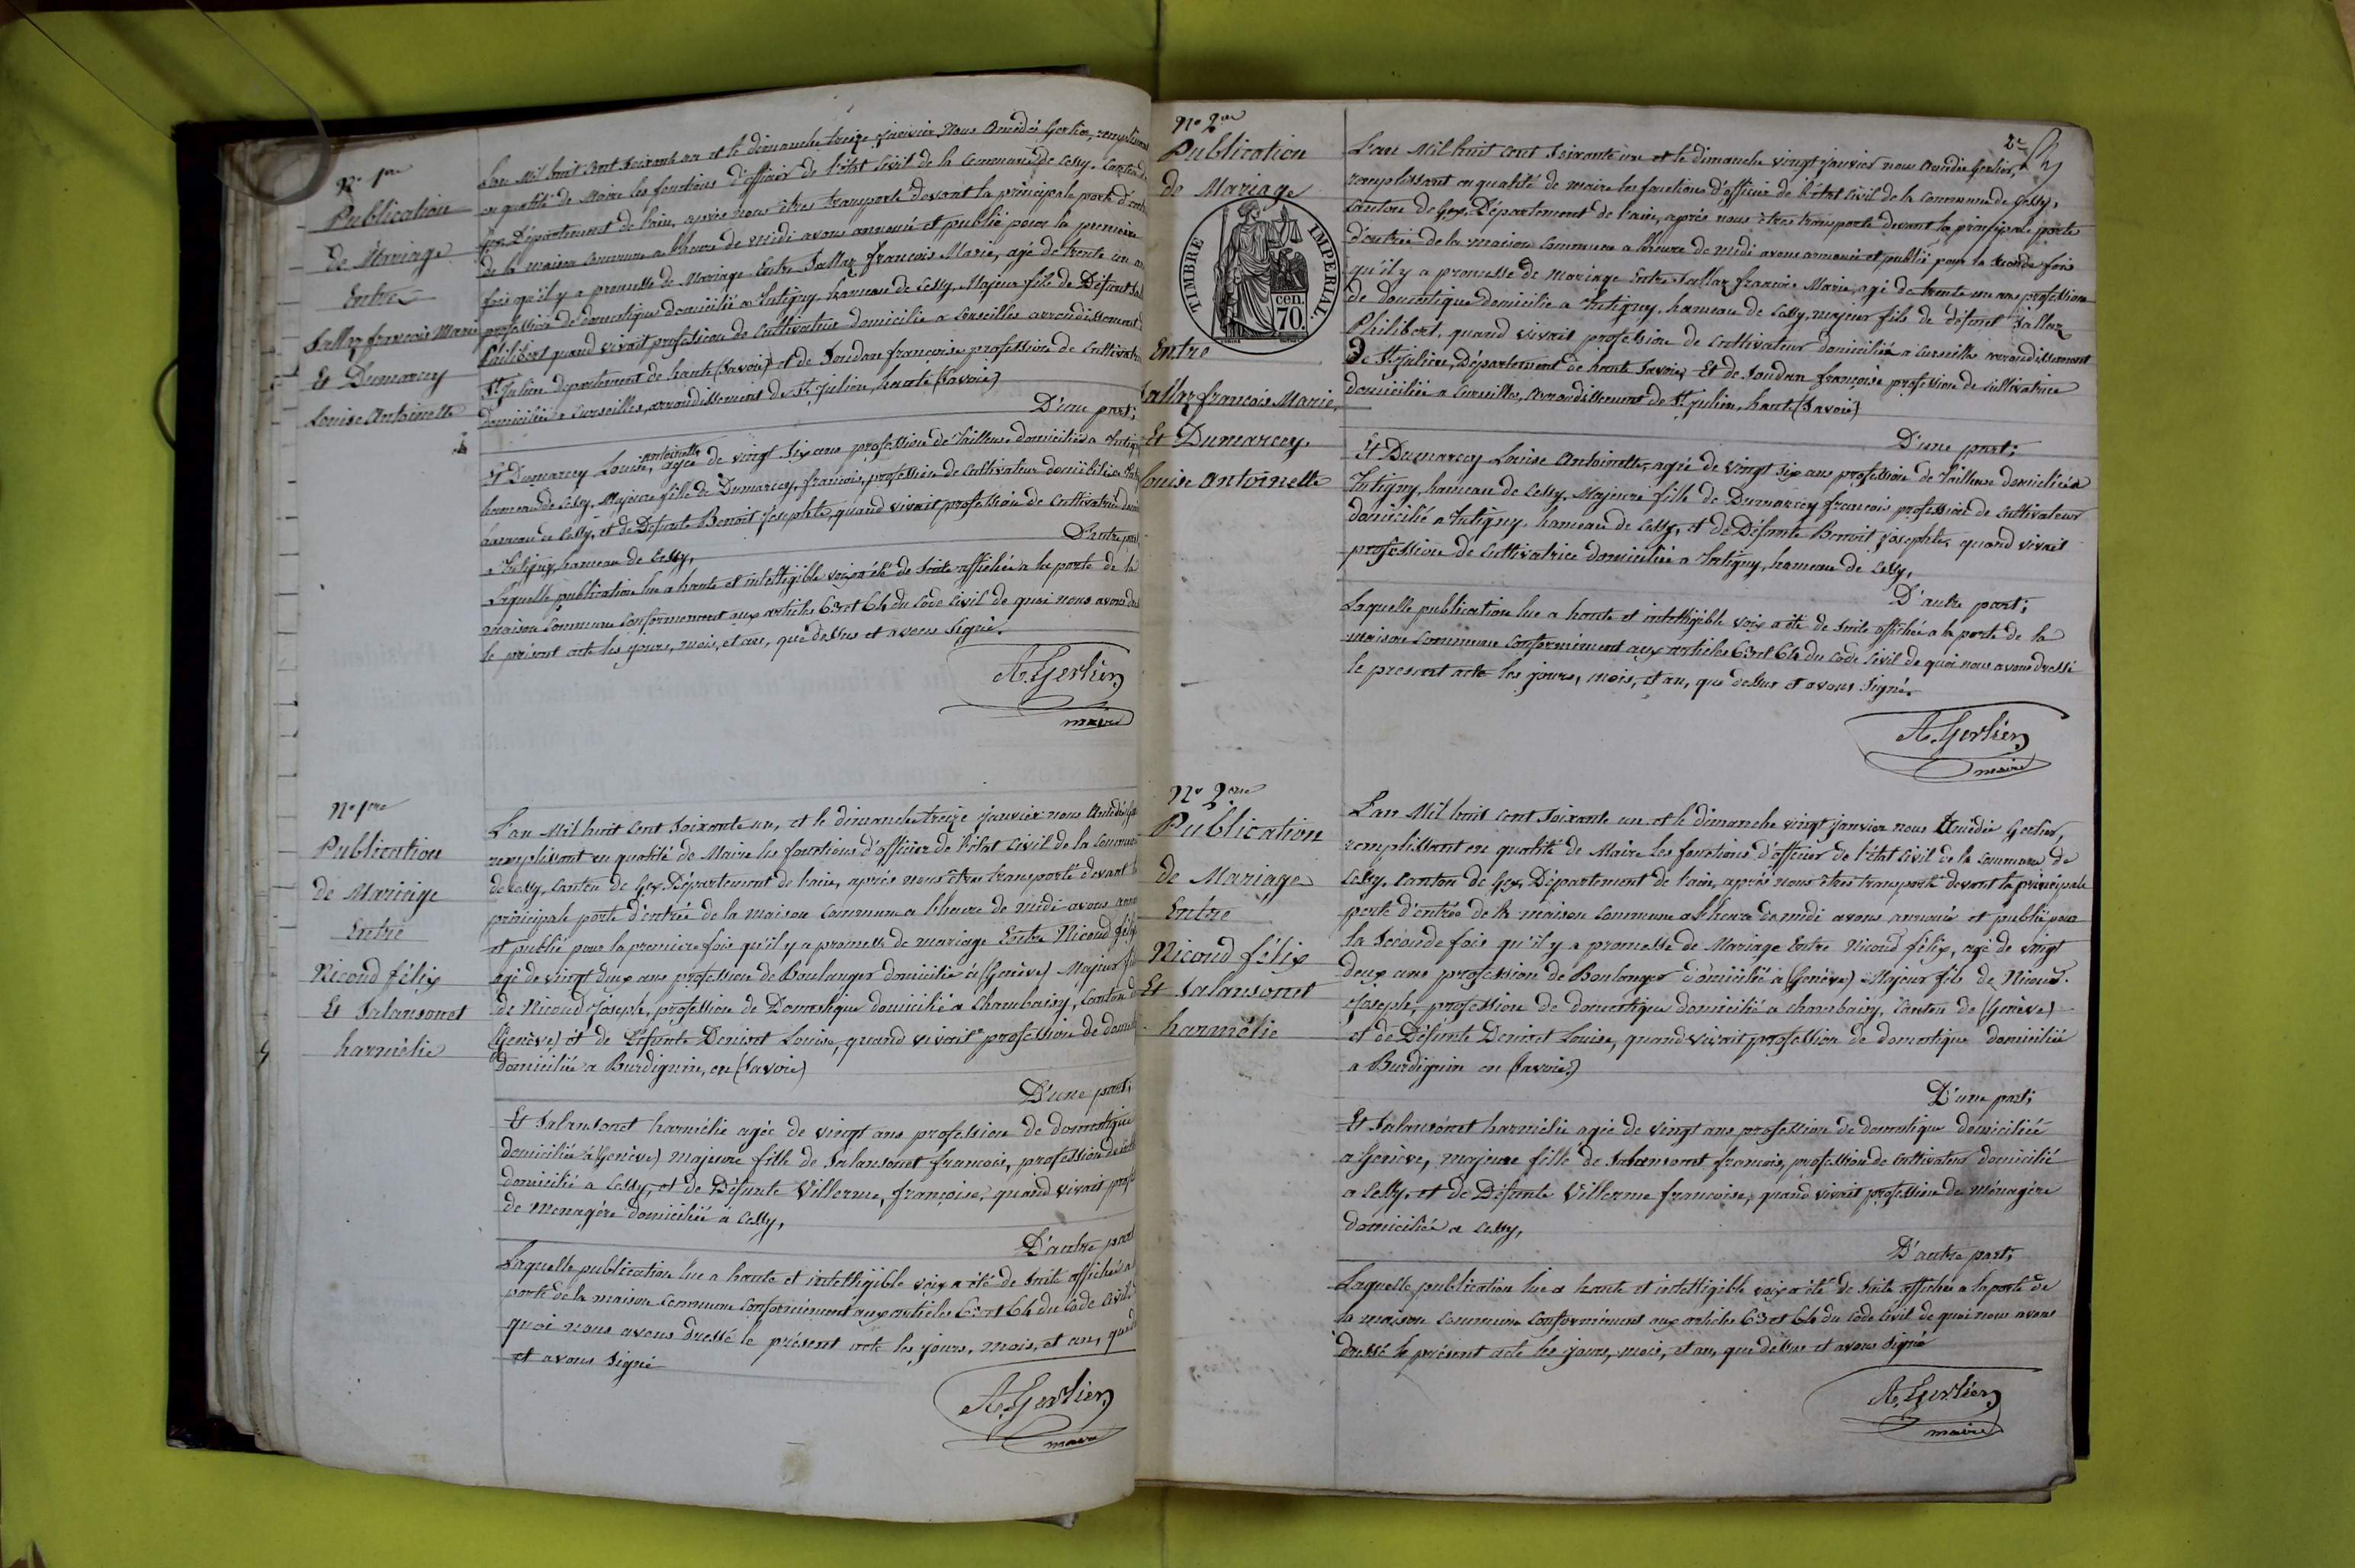 N° 1re
Publication
de Mariage
Entre
Sallaz francois Marie
Et Dumarcey
Louise Antoinette
L'an Mil huit Cent Soixante un et le dimanche treize Janvier Nous Amédée Gerlier,
en qualité de Maire les fonctions d'officier de l'état Civil de la Commune de Cessy, Canton de
Gex Département de l'ain, après nous êtres transporté devant la principale porte
de la maison Commune a l'heure de midi avons annoncé et publié pour la premiere
fois qu'il y a promesse de Mariage Entre Sallaz francois Marie, agé de trente un
profession de domestique domicilié a Tutigny hameau de Cessy, Majeur fils de Défunt
Philibert quand vivait profession de Cultivateur domicilié a Curseilles arrondissement
St Julien département de haute (Savoie) et de Soudan francoise profession de
domiciliée a Curseilles, arrondissement de St julien, haute (Savoie)
D'une part;
Et Dumarcey Louise, antoinette agée de vingt Six ans profession de Tailleuse domiciliée a
hameau de Cessy, Majeure fille de Dumarcey, francois, profession de Cultivateur domicilié a
hameau de Cessy, et de Défunte Benoit Josephte, quand vivait profession de Cultivatrice
a Tutigny, hameau de Cessy,
D'autre part
Laquelle publication lue a haute et intelligible voix a été de Suite affichée a la porte de la
maison Commune Conformement aux articles 63 et 64 du Code Civil de quoi nous avons
le présent acte les jours, mois, et an, que dessus et avons Signé.
A. Gerlier
maire
N° 1re
Publication
de Mariage
Entre
Nicoud félix
Et Salansonet
harmélie
L'an Mil huit Cent Soixante un, et le dimanche treize janvier nous Amédée
remplissant en qualité de Maire les fonctions d'officier de l'état Civil de la
de Cessy, Canton de Gex, Département de l'ain, après nous êtres transporté devant
principale porte d'entrée de la maison Commune a l'heure de midi avons
et publié pour la premiere fois qu'il y a promesse de mariage Entre Nicoud
agé de vingt deux ans profession de Boulanger domicilié à (Genève) Majeur
de Nicoud Joseph, profession de Domestique domicilié a Chambaisy, Canton
(Genève) et de Défunte Denisot Louise, quand vivait profession de
domiciliée a Burdignin, en (Savoie)
D'une part;
Et Salansonet harmélie agée de vingt ans profession de domestique
domiciliée à (Genève) majeure fille de Salansonet francois, profession
domicilié a Cessy, et de Défunte Villerme, françoise, quand vivait
de Menagère domiciliée à Cessy,
D'autre part
Laquelle publication lue a haute et intelligible voix a été de Suite affichée a
porte de la maison Commune Conformément aux articles 63 et 64 du Code Civil
quoi nous avons dressé le présent acte les jours, mois, et an, que
et avons Signé
A. Gerlier
maire
2e
N° 2me
Publication
de Mariage
TIMBRE IMPERIAL.
cen.
70.
Entre
Sallaz francois Marie,
Et Dumarcey,
Louise antoinette
L'an Mil huit cent Soixante un et le dimanche vingt janvier nous Amédée Gerlier,
remplissant en qualité de maire les fonctions d'officier de l'état Civil de la Commune de Cessy,
Canton de Gex, Département de l'ain, après nous êtres transporté devant la principale porte
d'entrée de la maison Commune a l'heure de midi avons annoncé et publié pour la Seconde fois
qu'il y a promesse de Mariage Entre Sallaz francois Marie, agé de trente un ans profession
de domestique domicilié a Tutigny, hameau de Cessy, majeur fils de défunt Sallaz
Philibert, quand vivait profession de Cultivateur domicilié a Curseilles arrondissement
de St julien, Département de haute Savoie, Et de Soudan françoise profession de Cultivatrice
domiciliée a Curseilles, arrondissement de St julien, haute (Savoie)
D'une part;
Et Dumarcey Louise Antoinette, agée de vingt Six ans profession de Tailleuse domiciliée a
Tutigny, hameau de Cessy, Majeure fille de Dumarcey francois profession de Cultivateur
domicilié a Tutigny hameau de Cessy, et de Défunte Benoit josephte, quand vivait
profession de Cultivatrice domiciliée a Tutigny, hameau de Cessy,
D'autre part;
Laquelle publication lue a haute et intelligible voix a été de Suite affichée a la porte de la
maison Commune Conformément aux articles 63 et 64 du Code Civil de quoi nous avons dressé
le present acte les jours, mois, et an, que dessus et avons Signé.
A. Gerlier
maire
N° 2me
Publication
de Mariage
Entre
Nicoud félix
Et Salansonet
harmélie
L'an Mil huit cent Soixante un et le dimanche vingt janvier nous Amédée Gerlier,
remplissant en qualité de Maire les fonctions d'officier de l'état Civil de la Commune de
Cessy, Canton de Gex, Département de l'ain, après nous êtres transporté devant la principale
porte d'entrée de la maison Commune a l'heure de midi avons annoncé et publié pour
la Seconde fois qu'il y a promesse de Mariage Entre Nicoud félix, agé de vingt
deux ans profession de Boulanger domicilié à (Genève) Majeur fils de Nicoud
Joseph, profession de domestique domicilié a Chambaisy, Canton de (Genève)
et de Défunte Denisot Louise, quand vivait profession de domestique domiciliée
a Burdignin en (Savoie)
D'une part;
Et Salansonet harmelie agée de vingt ans profession de domestique domiciliée
a Genève, majeure fille de Salansonet francois, profession de Cultivateur domicilié
a Cessy, et de Défunte Villerme francoise, quand vivait profession de Ménagère
domiciliée a Cessy,
D'autre part;
Laquelle publication lue a haute et intelligible voix a été de Suite affichée a la porte de
la maison Commune Conformément aux articles 63 et 64 du Code Civil de quoi nous avons
dressé le présent acte les jours, mois, et an, que dessus et avons Signé
A. Gerlier
maire